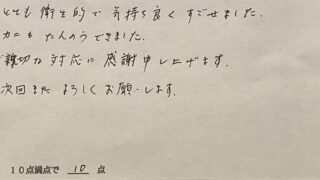 とても衛生的で気持ち良くすごせました。
カニもたんのうできました。
ご親切な対応に感謝申し上げます。
次回またよろしくお願いします。
10点満点で 10 点